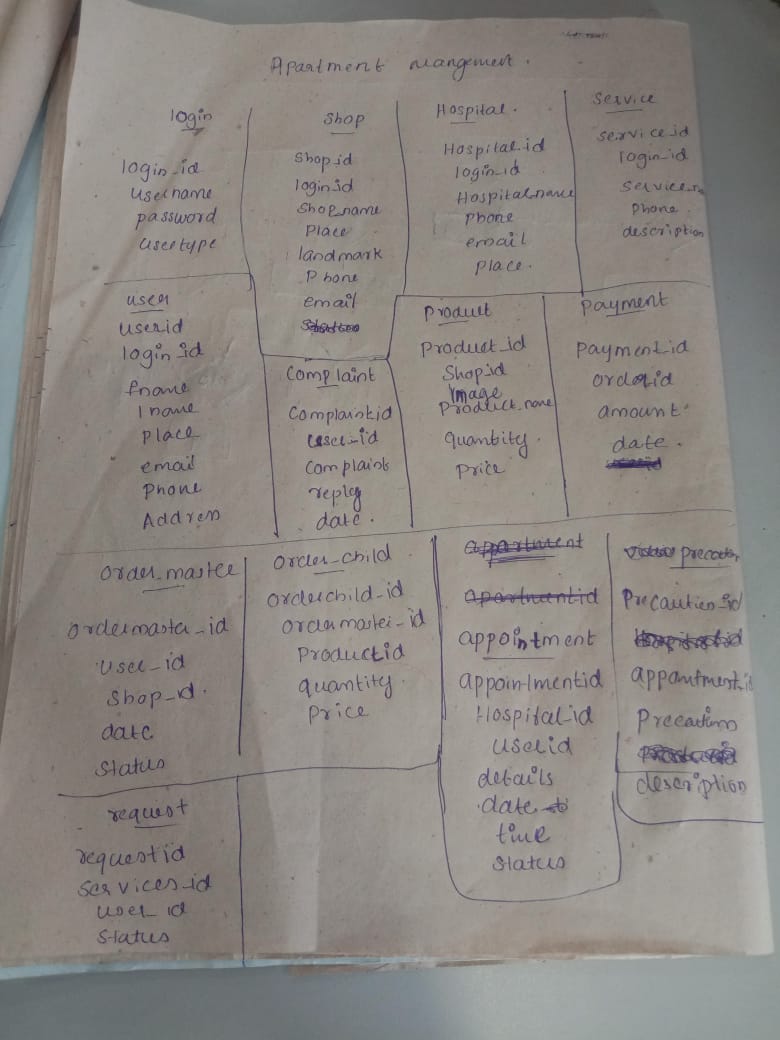 Apartment mangement.
login
login_id
username
password
usertype
Shop
Shop_id
login_id
Shop_name
Place
landmark
Phone
email
Hospital.
Hospital_id
login_id
Hospital_name
phone
email
place.
Service
service_id
login_id
phone
description
user
user_id
login_id
fname
lname
place
email
Phone
Address
Complaint
Complaint_id
user_id
Complaint
reply
date.
Product
Product_id
Shop_id
Image
Product_name
quantity.
price
Payment
Payment_id
order_id
amount
date.
Order_master
Ordermaster_id
user_id
Shop_id.
date
status
Order_child
Orderchild_id
Ordermaster_id
Product_id
quantity.
Price
apartment
apartment_id
appointment
appointment_id
Hospital_id
user_id
details
date
time
status
Precaution_id
description
request
request_id
services_id
user_id
status